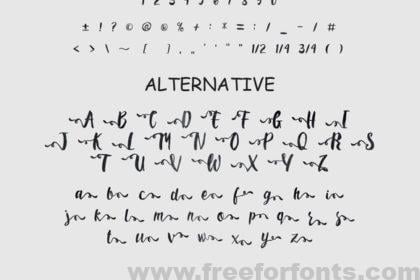 1 2 3 4 5 6 7 8 9 0
± ! ? © @ © % ' * = : / _ - / #
< > \ ~ [ ] , „ ' ' " " 1/2 1/4 3/4 ( )
ALTERNATIVE
A B C D E F G H I
J K L M N O P Q R S
T U V W X Y Z
a b c d e f g h i
j k l m n o p q r s
t u v w x y z
www.freeforfonts.com